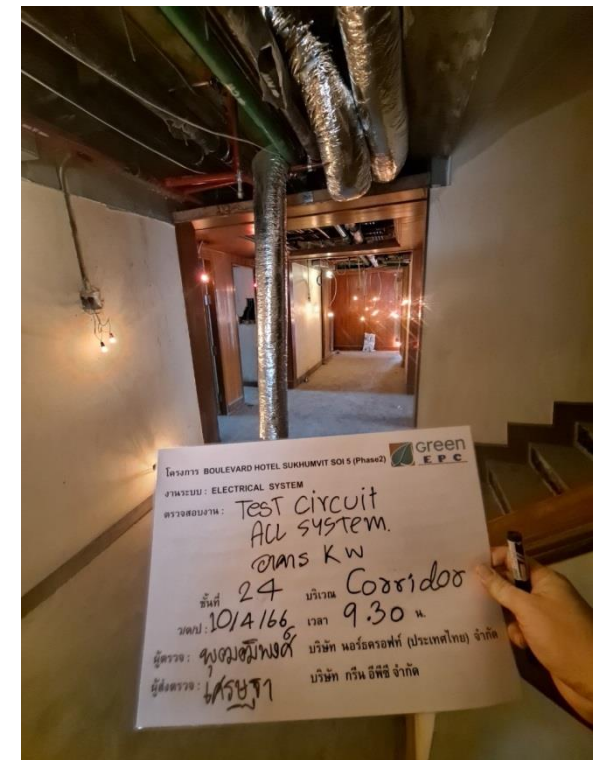 Green
EPC
โครงการ BOULEVARD HOTEL SUKHUMVIT SOI 5 (Phase2)
งานระบบ : ELECTRICAL SYSTEM
ตรวจสอบงาน : TEST CIRCUIT
ALL SYSTEM.
อาคาร KW
ชั้นที่ 24 บริเวณ Corridor
ว/ด/ป : 10/4/66 เวลา 9.30 น.
ผู้ตรวจ : บริษัท นอร์ธครอฟท์ (ประเทศไทย) จำกัด
ผู้ส่งตรวจ : เศรษฐา บริษัท กรีน อีพีซี จำกัด